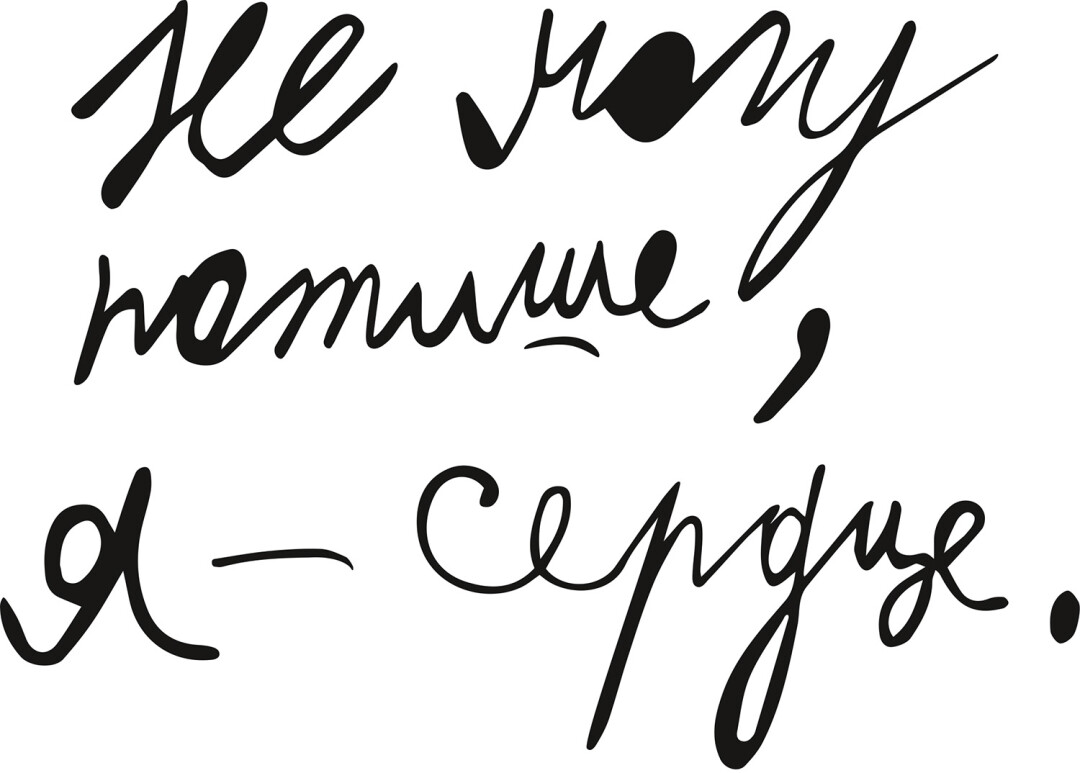 Не могу
потише,
я - сердце.